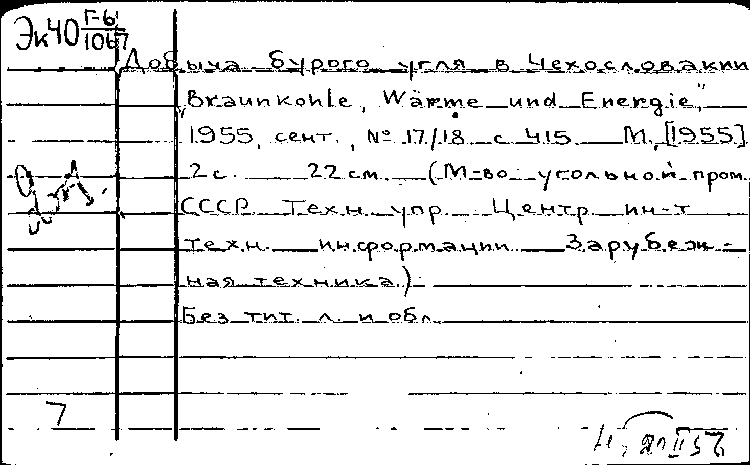 Эк40 Г-61
1067
Добыча бурого угля в Чехословакии
„Braunkohle, Wärme und Energie"
1955, сент., № 17/18 с 415 М., [1955]
2 с. 22 см. (М-во угольной пром.
СССР. Техн. упр. Центр. ин-т
техн. информации. Зарубеж-
ная техника)
Без тит. л. и обл.
7